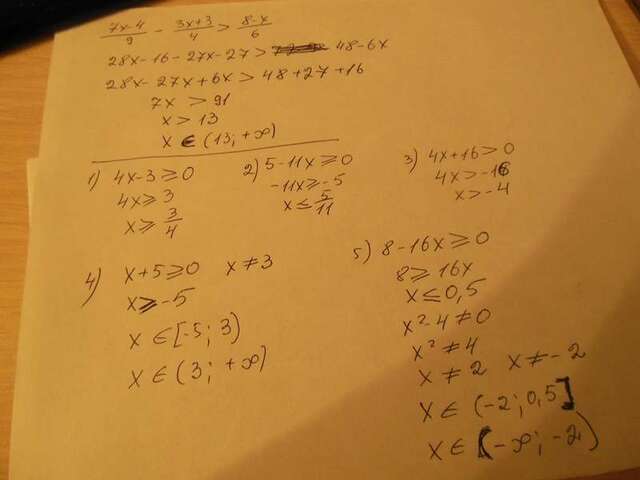 (7x-4)/9 - (3x+3)/4 > (8-x)/6
28x-16-27x-27> 48-6x
28x-27x+6x>48+27+16
7x >91
x>13
x ∈ (13; +∞)
1) 4x-3≥0
4x≥3
x≥ 3/4
2) 5-11x≥0
-11x≥-5
x≤ 5/11
3) 4x+16>0
4x>-16
x>-4
4) x+5≥0 x≠3
x≥-5
x ∈[-5; 3)
x ∈ (3; +∞)
5) 8-16x≥0
8≥16x
x≤0,5
x²-4≠0
x²≠4
x≠2 x≠-2
x∈ (-2; 0,5]
x∈ (-∞; -2)